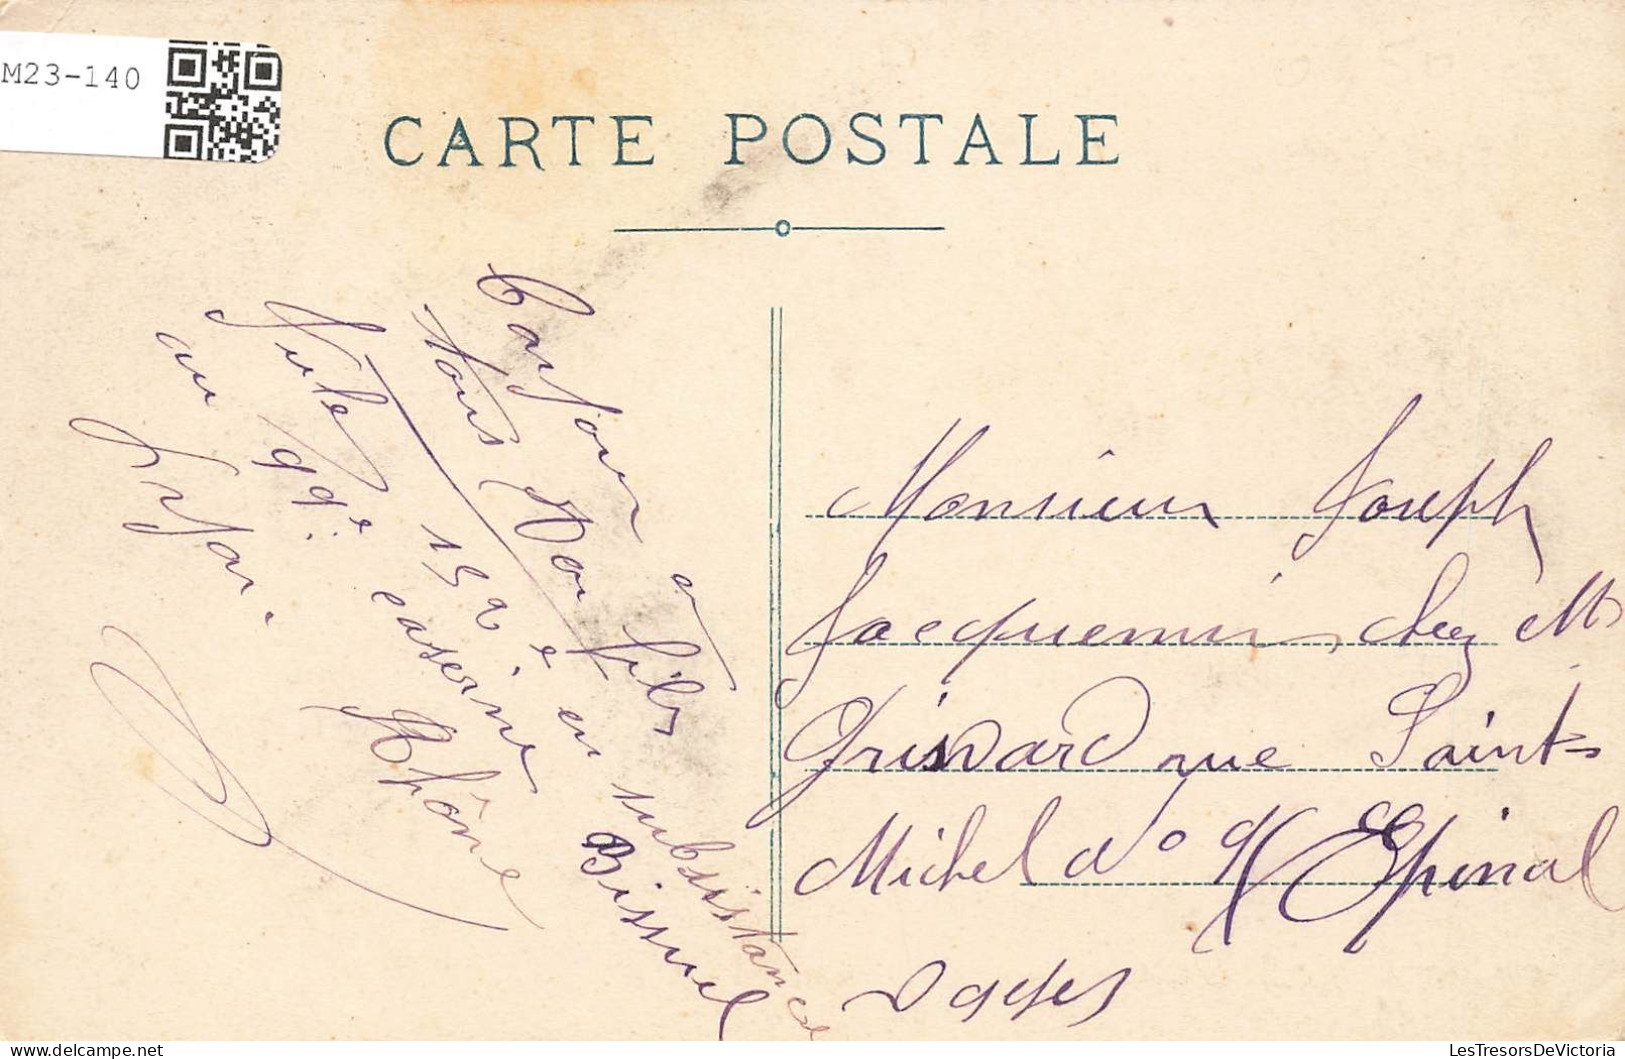 M23-140
CARTE POSTALE
Bonjour a
tous Ton fils
Jules 152e en subsistance
au 99e caserne Bissuel
Lyon. Rhône
Monsieur Joseph
Jacquemin, chez Mr
Grisvard rue Saint-
Michel No 9 Epinal
Vosges
LesTresorsDeVictoria